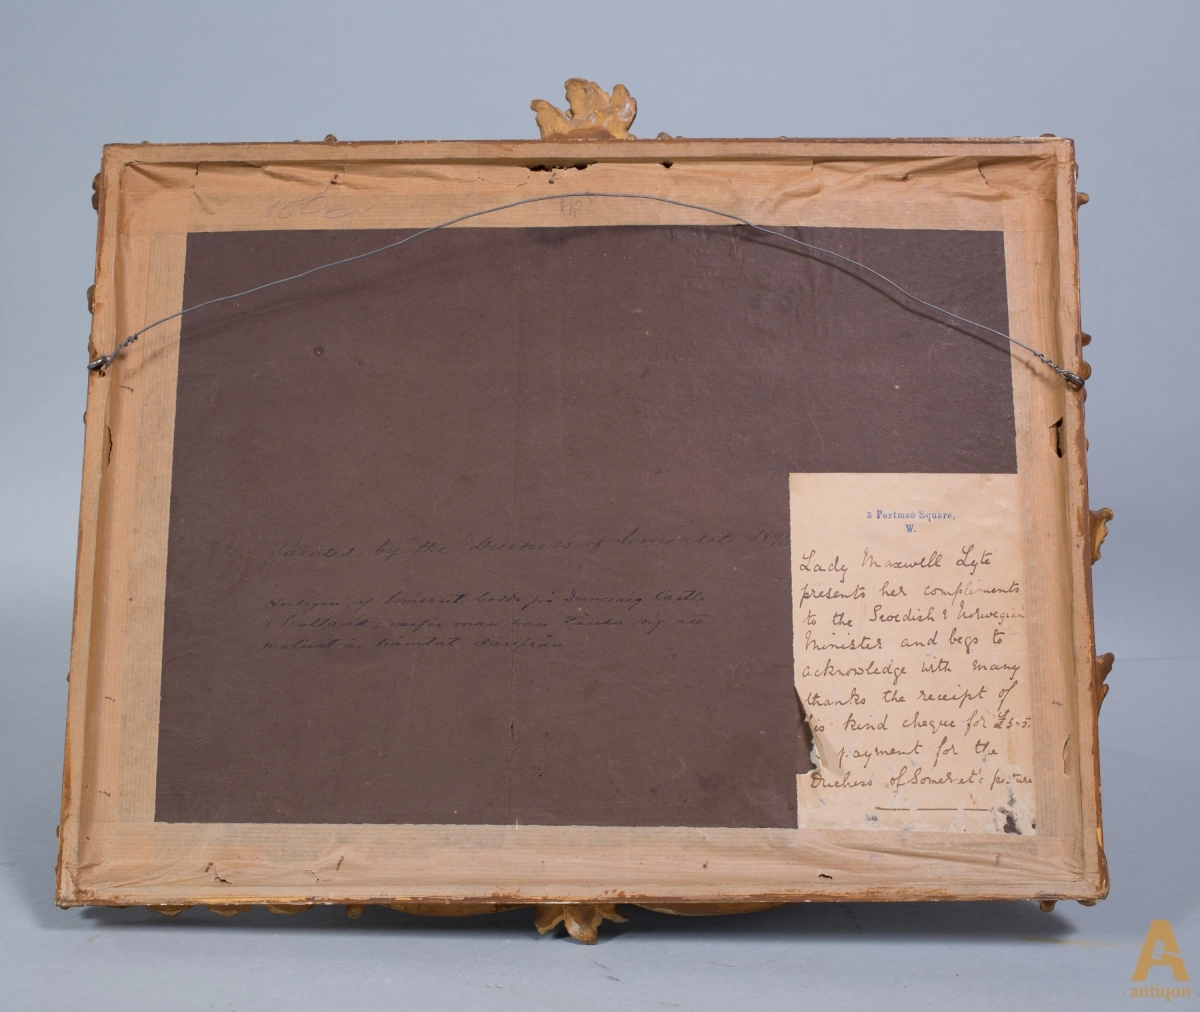 Painted by the Duchess of Somerset. 189
Hertigen of Somerset bodde på Castle
i Scotland, man kan tänka sig att
motivet är hämtat därifrån
3 Portman Square,
W.
Lady Maxwell Lyte
presents her compliments
to the Swedish & Norwegian
Minister and begs to
acknowledge with many
thanks the receipt of
his kind cheque for £5-5.
payment for the
Duchess of Somerset's picture
antiqon